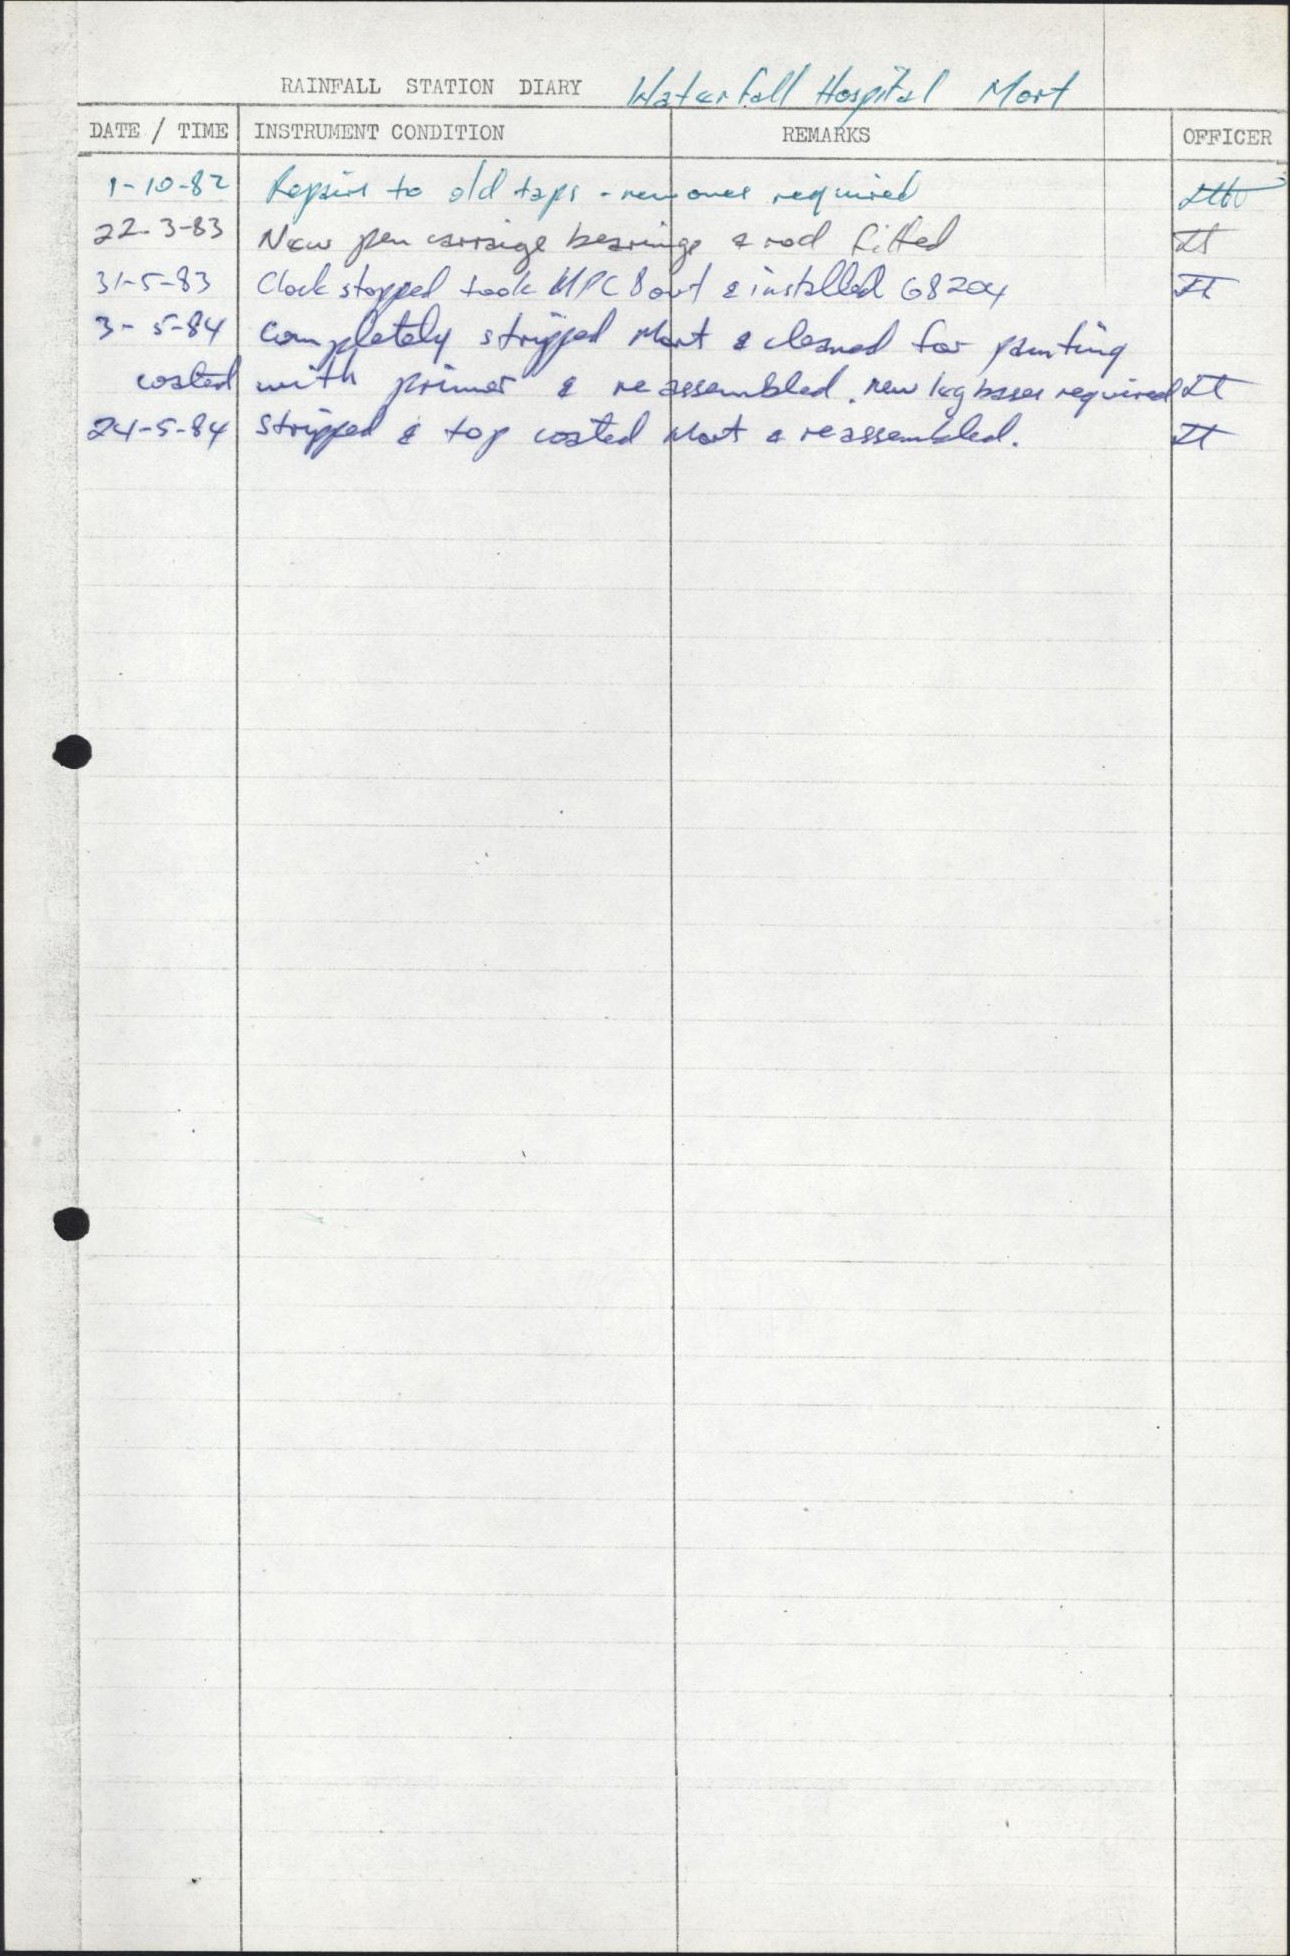 RAINFALL STATION DIARY Waterfall Hospital Mort
DATE / TIME INSTRUMENT CONDITION REMARKS OFFICER
1-10-82 Repairs to old taps - new ones required
22.3-83 New pen carraige bearings & rod fitted
31-5-83 Clock stopped took MPC 8 out & installed G8204
3-5-84 Completely stripped Mort & cleaned for painting
coated with primer & reassembled. new leg bases required
24-5-84 Stripped & top coated Mort & reassembled.